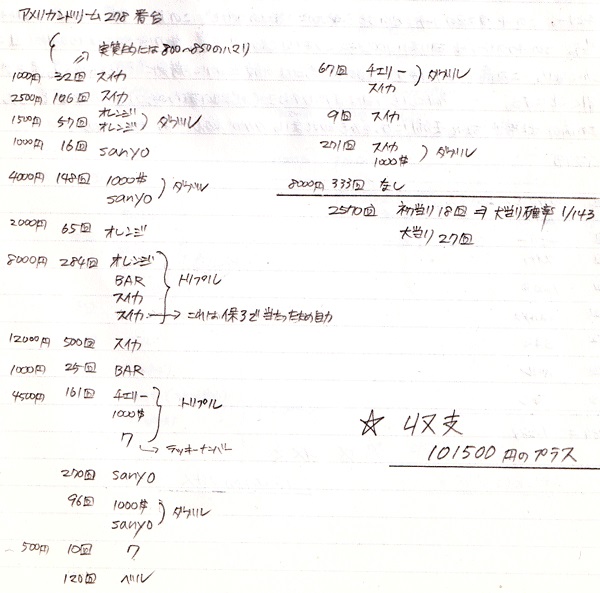 アメリカンドリーム 278番台
実質的には 800〜850のハマリ
1000円 32回 スイカ
2500円 106回 スイカ
1500円 57回 オレンジ
オレンジ ダブル
1000円 16回 sanyo
4000円 148回 1000$
sanyo ダブル
2000円 65回 オレンジ
8000円 284回 オレンジ
BAR トリプル
スイカ
スイカ → これは保3で当ったため自力
12000円 500回 スイカ
1000円 25回 BAR
4500円 161回 チエリー トリプル
1000$
7 → ラッキーナンバー
270回 sanyo
96回 1000$
sanyo ダブル
500円 10回 7
120回 ベル
67回 チエリー
スイカ ダブル
9回 スイカ
271回 スイカ
1000$ ダブル
8000円 333回 なし
2570回 初当り 18回 ⇒ 大当り確率 1/143
大当り 27回
☆ 収支
101500円のプラス